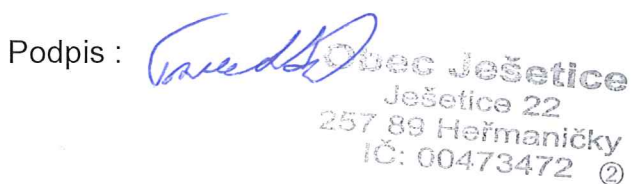 Podpis :
Obec Ješetice
Ješetice 22
257 89 Heřmaničky
IČ: 00473472 ②